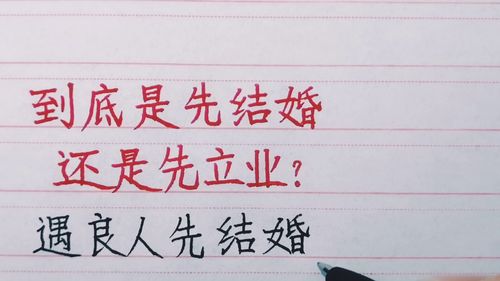 到底是先结婚
还是先立业?
遇良人先结婚